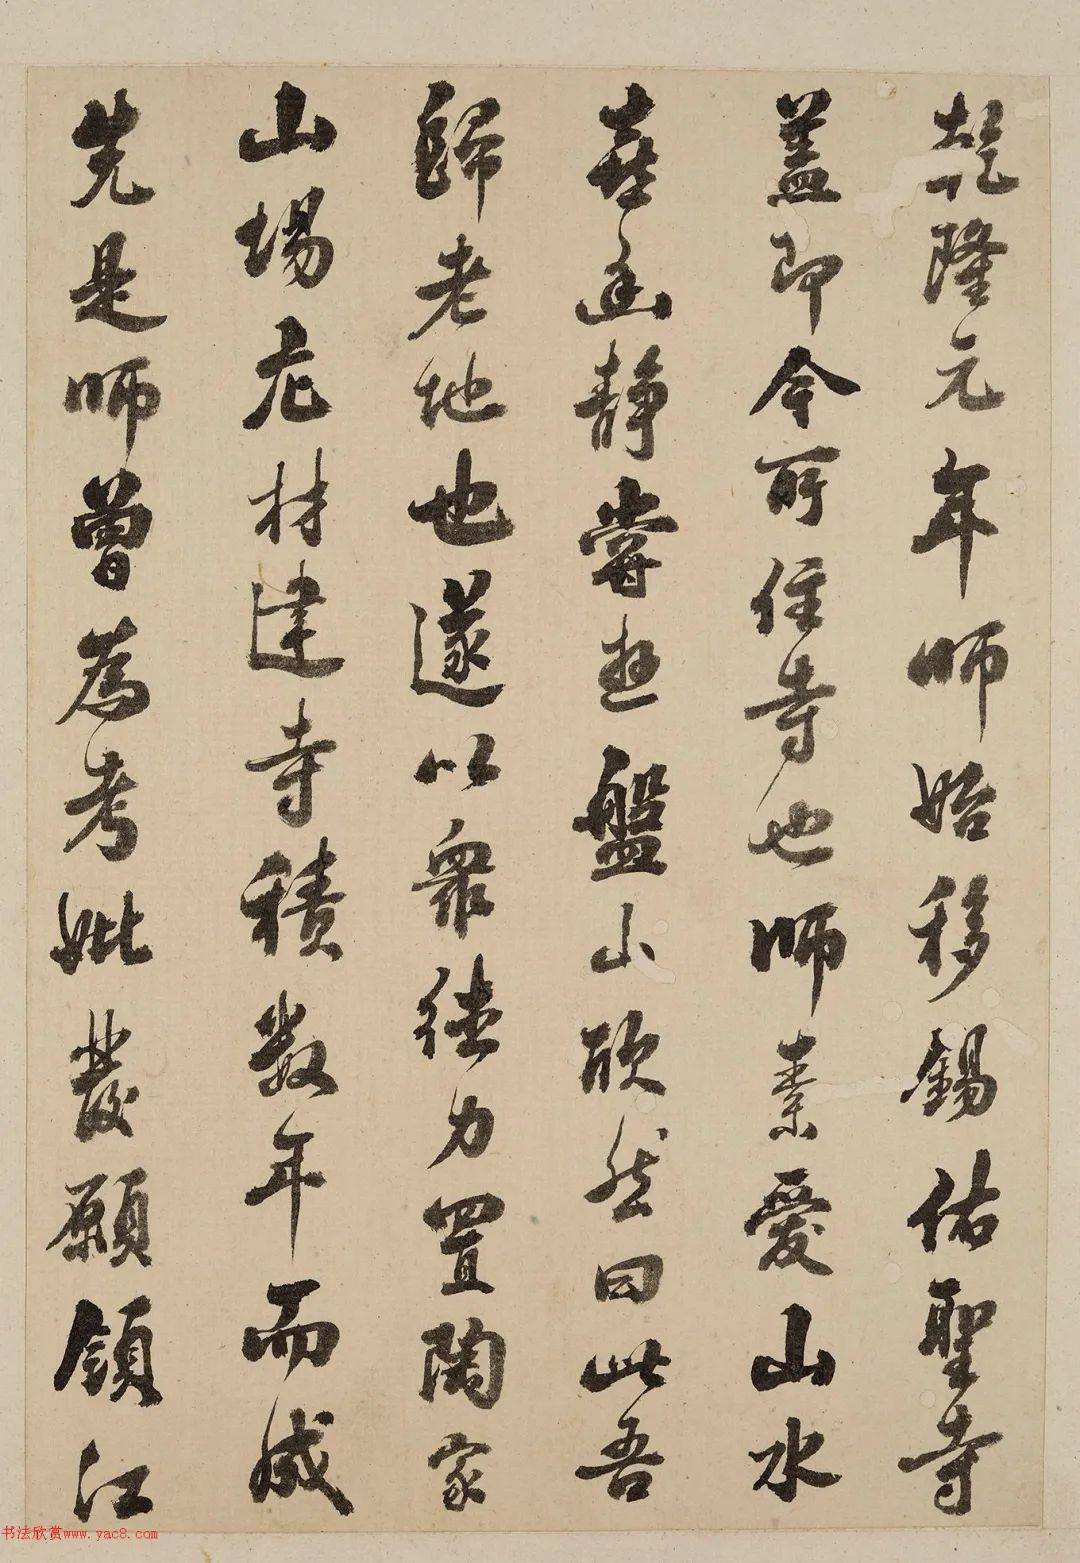 乾隆元年師始移錫佑聖寺
蓋即今所住寺也師素愛山水
喜幽靜嘗遊盤山欣然曰此吾
歸老地也遂以眾徒力置陶家
山場庀材建寺積數年而成
先是師曾為考妣發願領江
书法欣赏www.yac8.com